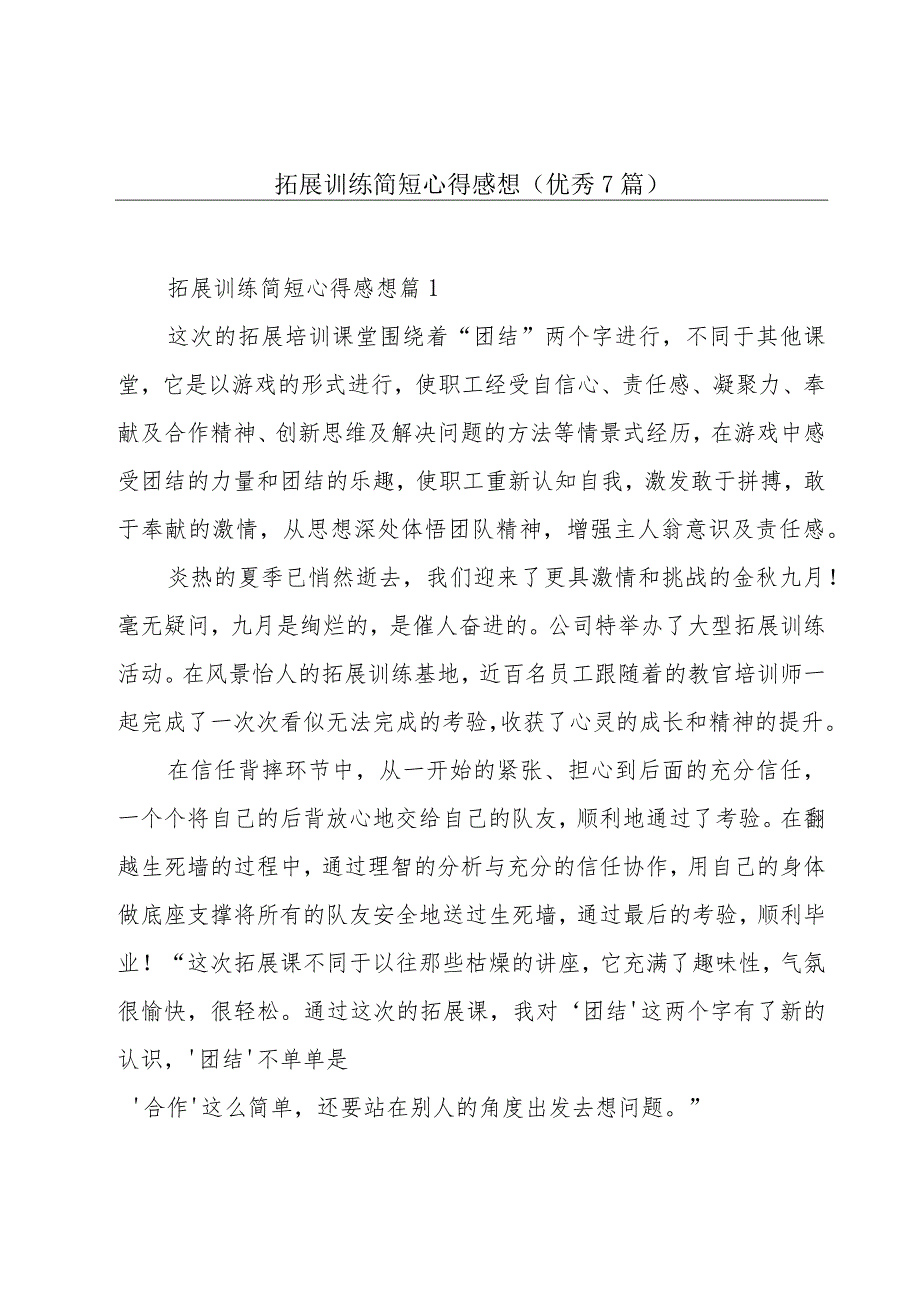 拓展训练简短心得感想（优秀7篇）
拓展训练简短心得感想篇1
这次的拓展培训课堂围绕着“团结”两个字进行，不同于其他课
堂，它是以游戏的形式进行，使职工经受自信心、责任感、凝聚力、奉
献及合作精神、创新思维及解决问题的方法等情景式经历，在游戏中感
受团结的力量和团结的乐趣，使职工重新认知自我，激发敢于拼搏，敢
于奉献的激情，从思想深处体悟团队精神，增强主人翁意识及责任感。
炎热的夏季已悄然逝去，我们迎来了更具激情和挑战的金秋九月！
毫无疑问，九月是绚烂的，是催人奋进的。公司特举办了大型拓展训练
活动。在风景怡人的拓展训练基地，近百名员工跟随着的教官培训师一
起完成了一次次看似无法完成的考验，收获了心灵的成长和精神的提升。
在信任背摔环节中，从一开始的紧张、担心到后面的充分信任，
一个个将自己的后背放心地交给自己的队友，顺利地通过了考验。在翻
越生死墙的过程中，通过理智的分析与充分的信任协作，用自己的身体
做底座支撑将所有的队友安全地送过生死墙，通过最后的考验，顺利毕
业！“这次拓展课不同于以往那些枯燥的讲座，它充满了趣味性，气氛
很愉快，很轻松。通过这次的拓展课，我对‘团结'这两个字有了新的
认识，'团结'不单单是
'合作'这么简单，还要站在别人的角度出发去想问题。”